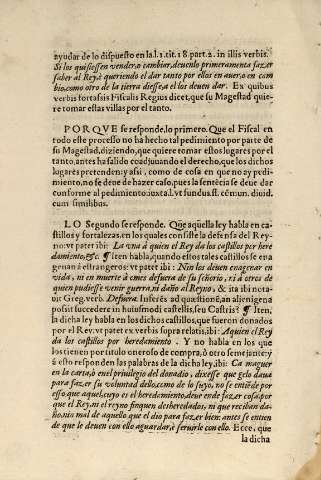 ayudar de lo dispuesto en la l. 1. tit. 18. part. 2. in illis verbis.
Se los quisiessen vender, o cambiar, deuenlo primeramente fazer
saber al Rey, è queriendo el dar tanto por ellos en auer, o en cam
bio, como otro de la tierra diesse, a el los deuen dar. Ex quibus
verbis fortassis Fiscalis Regius dicet, que su Magestad quie-
re tomar estas villas por el tanto.
PORQVE se responde, lo primero. Que el Fiscal en
todo este processo no ha hecho tal pedimiento por parte de
su Magestad, diziendo, que quiere tomar estos lugares por el
tanto, antes ha salido coadjuuando el derecho, que los dichos
lugares pretenden: y assi, como de cosa en que no ay pedi-
miento, no se deue de hazer caso, pues la sentẽcia se deue dar
conforme al pedimento: iuxta l. vt fundus. ff. cõmun. diuid.
cum similibus.
LO Segundo se responde. Que aquella ley habla en ca-
stillos y fortalezas, en los quales consiste la defensa del Rey-
no: vt patet ibi: La vna à quien el Rey da los castillos per here
damiento, &c. ¶ Iten habla, quando estos tales castillos se ena
genan à estrangeros: vt patet ibi: Nin los deuen enagenar en
vida, ni en muerte à omes defuera de su señorio, ni à otros de
quien pudiesse venir guerra, ni daño al Reyno, & ita ibi nota-
uit Greg. verb. Defuera. Inferẽs ad quæstionẽ, an alienigena
possit succedere in huiusmodi castellis, seu Castris? ¶ Iten,
la dicha ley habla en los dichos castillos, que fueron donados
por el Rey. vt patet ex verbis supra relatis, ibi: Aquien el Rey
da los castillos por heredamiento. Y no habla en los que
los tienen por titulo oneroso de compra, ò otro semejante: y
à esto responden las palabras de la dicha ley, ibi: Ca maguer
en la carta, ò en el priuilegio del donadio, dixesse que gelo daua
para fazer su voluntad dello, como de lo suyo, no se entiẽde por
esso que aquel, cuyo es el heredamiento, deue ende fazer cosa, por
que el Rey, ni el reyno finquen desheredados, ni que reciban da-
ño, nia mal de aquello que el dio para fazer bien: antes se entien
de que le deuen con ello aguardar, è seruirle con ello. Ecce, que
la dicha